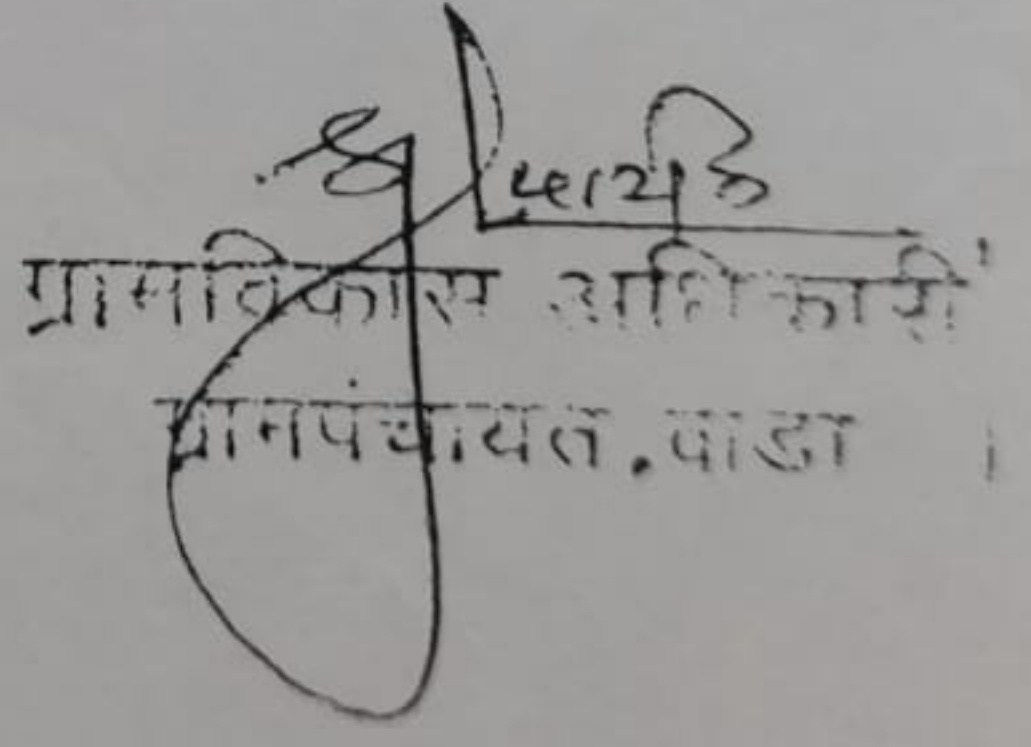 ग्रामविकास अधिकारी
ग्रामपंचायत.वाडा